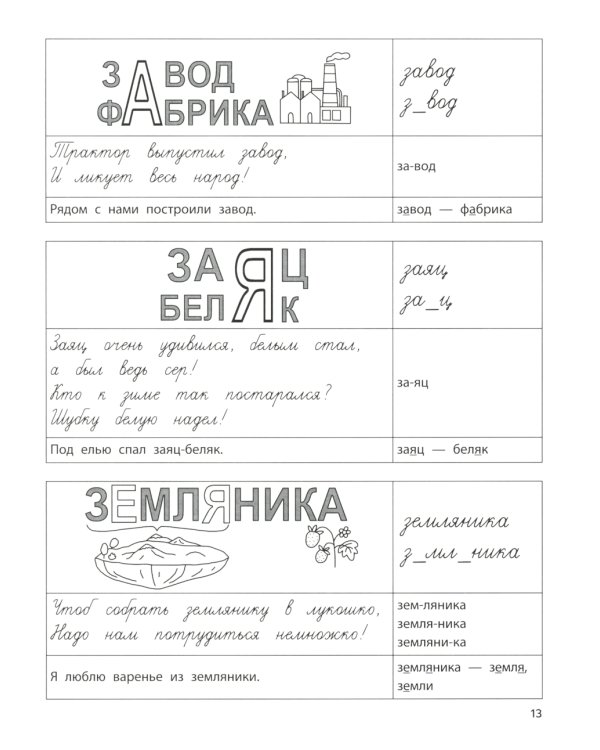 ЗАВОД
ФАБРИКА
завод
з_вод
Трактор выпустил завод,
И ликует весь народ!
за-вод
Рядом с нами построили завод.
завод — фабрика
ЗАЯЦ
БЕЛЯК
заяц
за_ц
Заяц очень удивился, белым стал,
а был ведь сер!
Кто к зиме так постарался?
Шубку белую надел!
за-яц
Под елью спал заяц-беляк.
заяц — беляк
ЗЕМЛЯНИКА
земляника
з_мл_ника
Чтоб собрать землянику в лукошко,
Надо нам потрудиться немножко!
зем-ляника
земля-ника
земляни-ка
Я люблю варенье из земляники.
земляника — земля,
земли
13